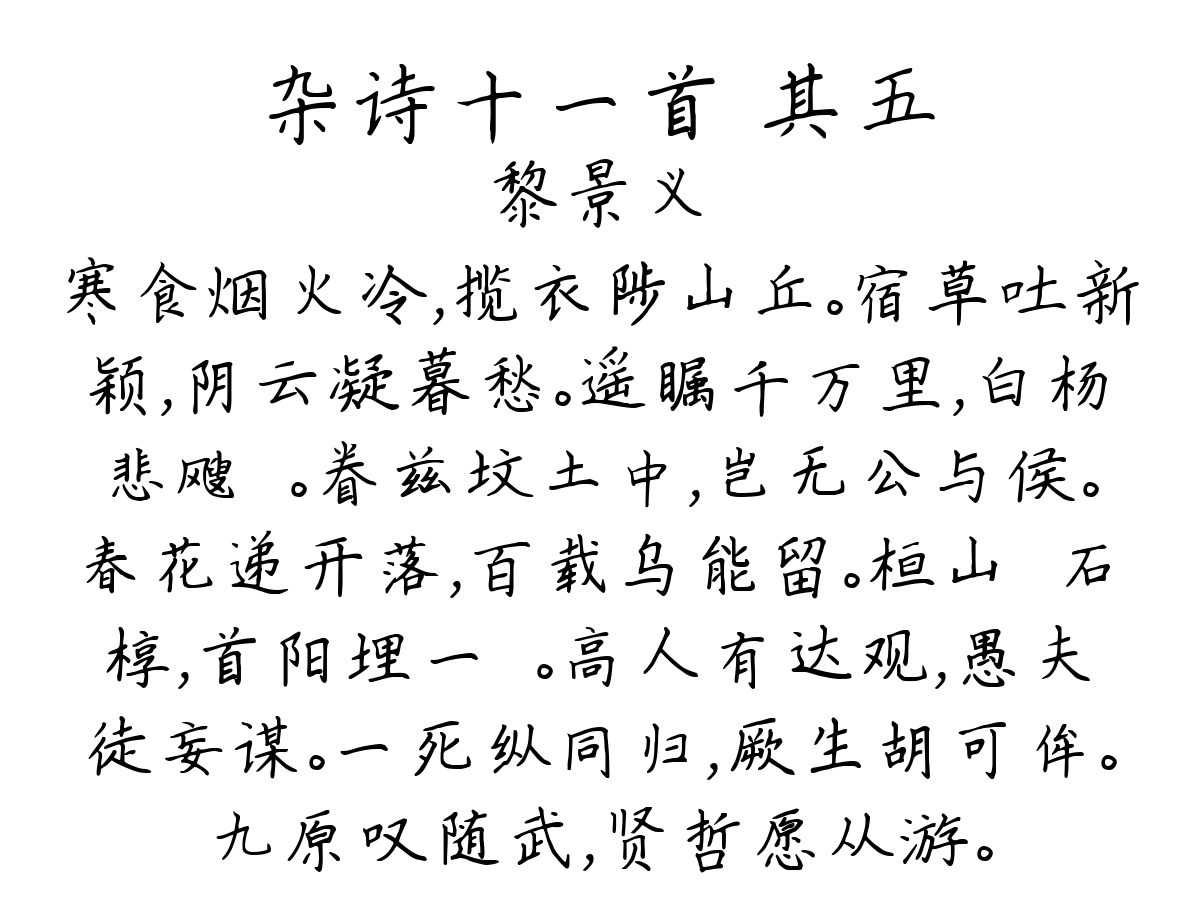 杂诗十一首 其五
黎景义
寒食烟火冷,揽衣陟山丘。宿草吐新
颖,阴云凝暮愁。遥瞩千万里,白杨
悲飕 。眷兹坟土中,岂无公与侯。
春花递开落,百载乌能留。桓山 石
椁,首阳埋一 。高人有达观,愚夫
徒妄谋。一死纵同归,厥生胡可侔。
九原叹随武,贤哲愿从游。